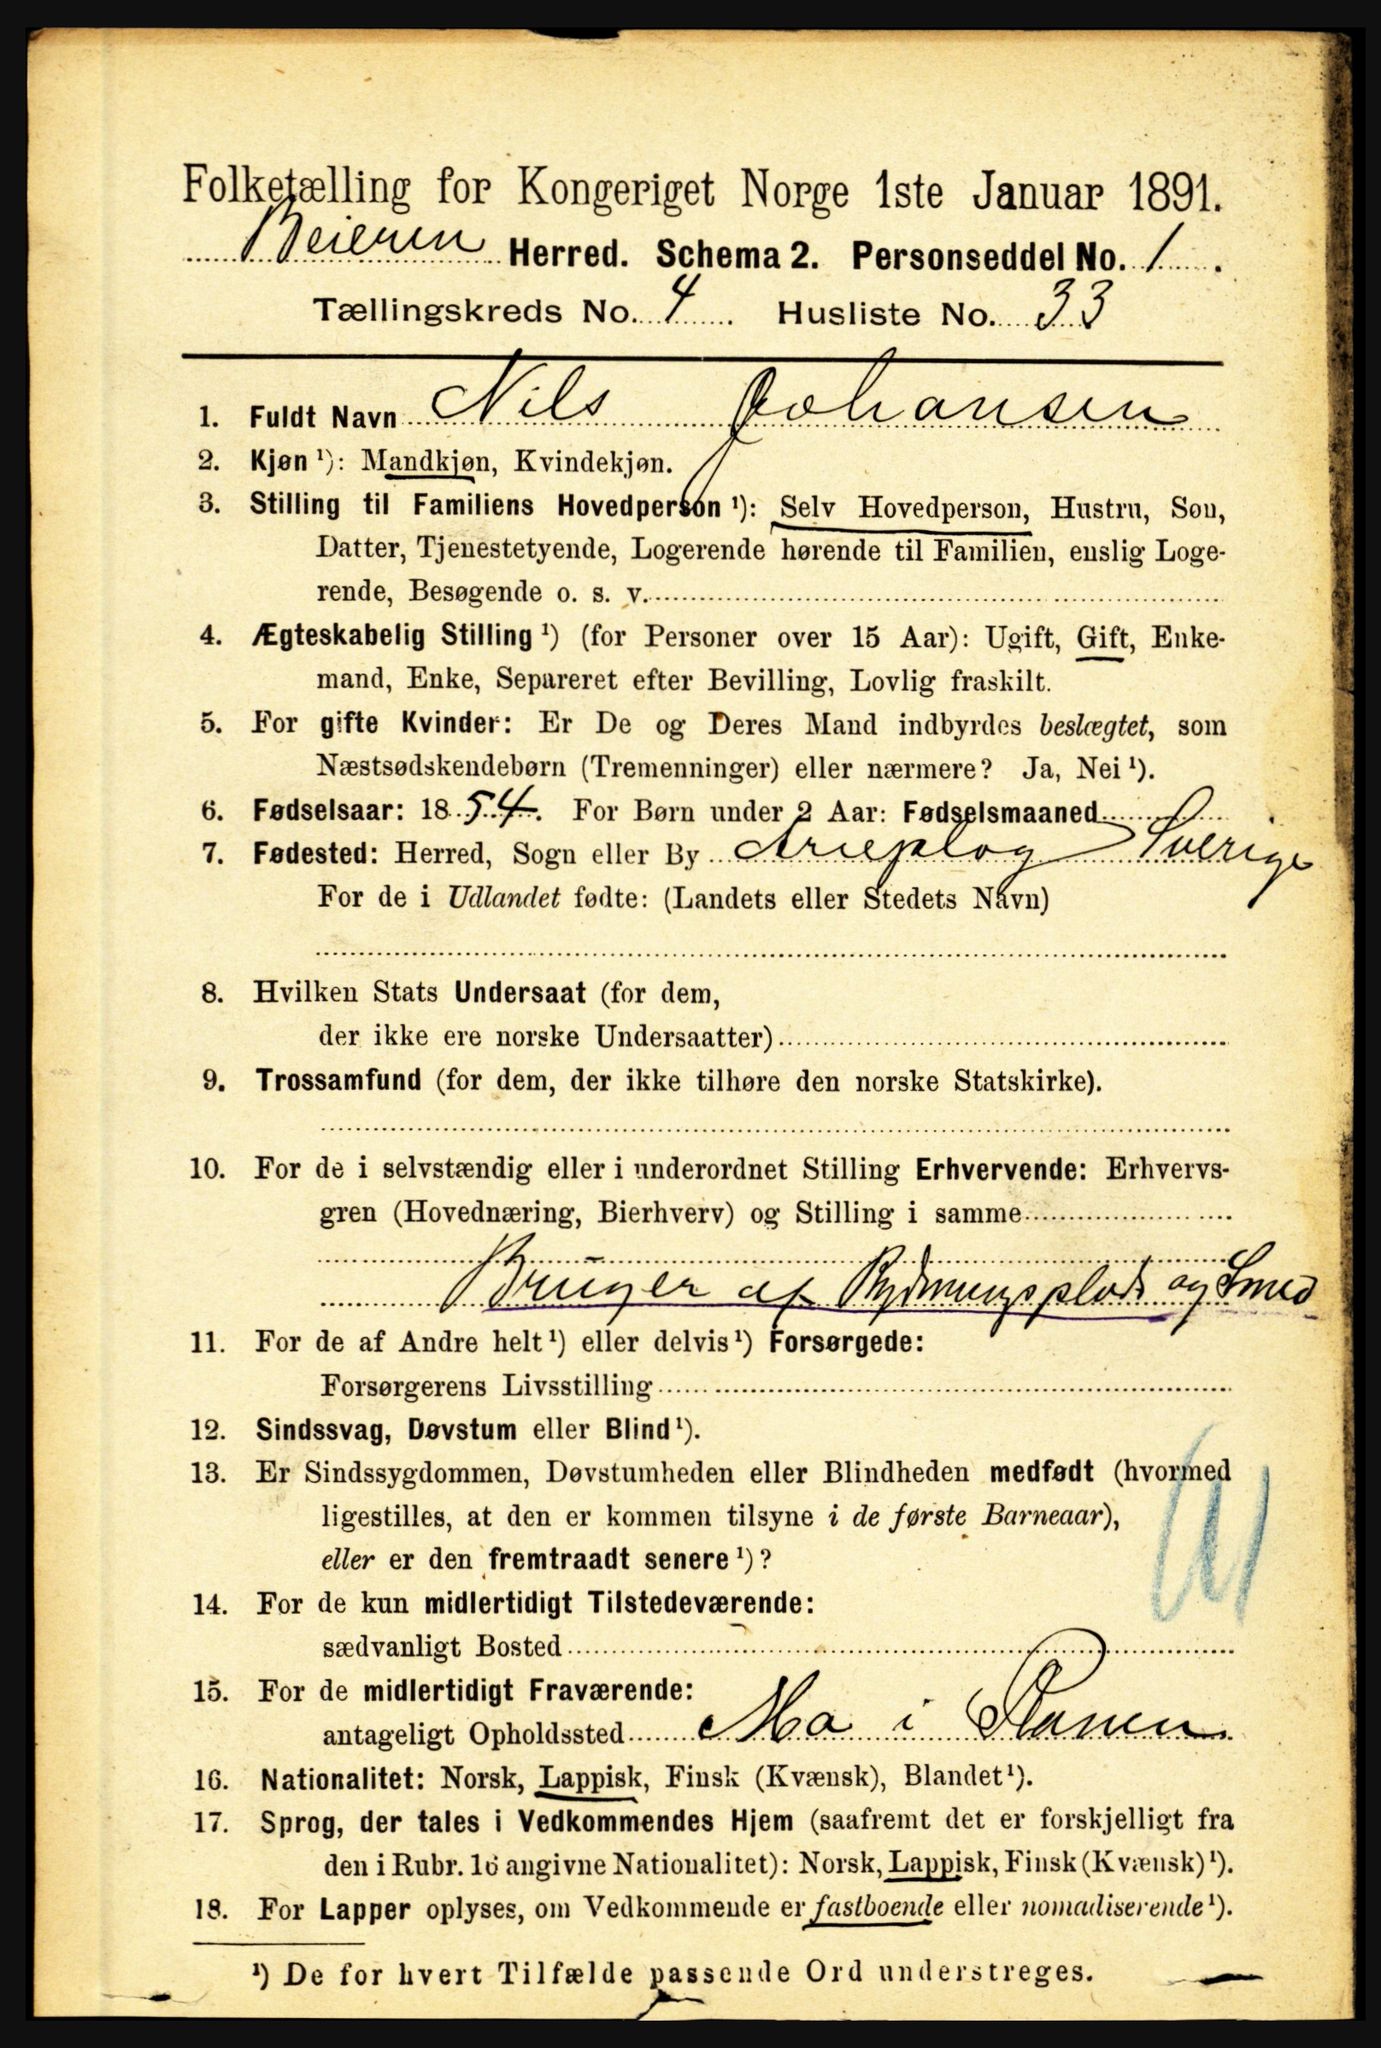 Folketælling for Kongeriget Norge 1ste Januar 1891.
Beieren Herred. Schema 2. Personseddel No. 1.
Tællingskreds No. 4 Husliste No. 33
1. Fuldt Navn Nils Johansen
2. Kjøn ¹): Mandkjøn, Kvindekjøn.
3. Stilling til Familiens Hovedperson ¹): Selv Hovedperson, Hustru, Søn,
Datter, Tjenestetyende, Logerende hørende til Familien, enslig Loge-
rende, Besøgende o. s. v.
4. Ægteskabelig Stilling ¹) (for Personer over 15 Aar): Ugift, Gift, Enke-
mand, Enke, Separeret efter Bevilling, Lovlig fraskilt.
5. For gifte Kvinder: Er De og Deres Mand indbyrdes beslægtet, som
Næstsødskendebørn (Tremenninger) eller nærmere? Ja, Nei ¹).
6. Fødselsaar: 1854. For Børn under 2 Aar: Fødselsmaaned
7. Fødested: Herred, Sogn eller By Arieplog Sverige
For de i Udlandet fødte: (Landets eller Stedets Navn)
8. Hvilken Stats Undersaat (for dem,
der ikke ere norske Undersaatter)
9. Trossamfund (for dem, der ikke tilhøre den norske Statskirke).
10. For de i selvstændig eller i underordnet Stilling Erhvervende: Erhvervs-
gren (Hovednæring, Bierhverv) og Stilling i samme
Bruger af Rydningsplads og Smed
11. For de af Andre helt ¹) eller delvis ¹) Forsørgede:
Forsørgerens Livsstilling
12. Sindssvag, Døvstum eller Blind ¹).
13. Er Sindssygdommen, Døvstumheden eller Blindheden medfødt (hvormed
ligestilles, at den er kommen tilsyne i de første Barneaar),
eller er den fremtraadt senere ¹)?
14. For de kun midlertidigt Tilstedeværende:
sædvanligt Bosted
15. For de midlertidigt Fraværende:
antageligt Opholdssted Mo i Ranen
16. Nationalitet: Norsk, Lappisk, Finsk (Kvænsk), Blandet ¹).
17. Sprog, der tales i Vedkommendes Hjem (saafremt det er forskjelligt fra
den i Rubr. 16 angivne Nationalitet): Norsk, Lappisk, Finsk (Kvænsk) ¹).
18. For Lapper oplyses, om Vedkommende er fastboende eller nomadiserende ¹).
¹) De for hvert Tilfælde passende Ord understreges.